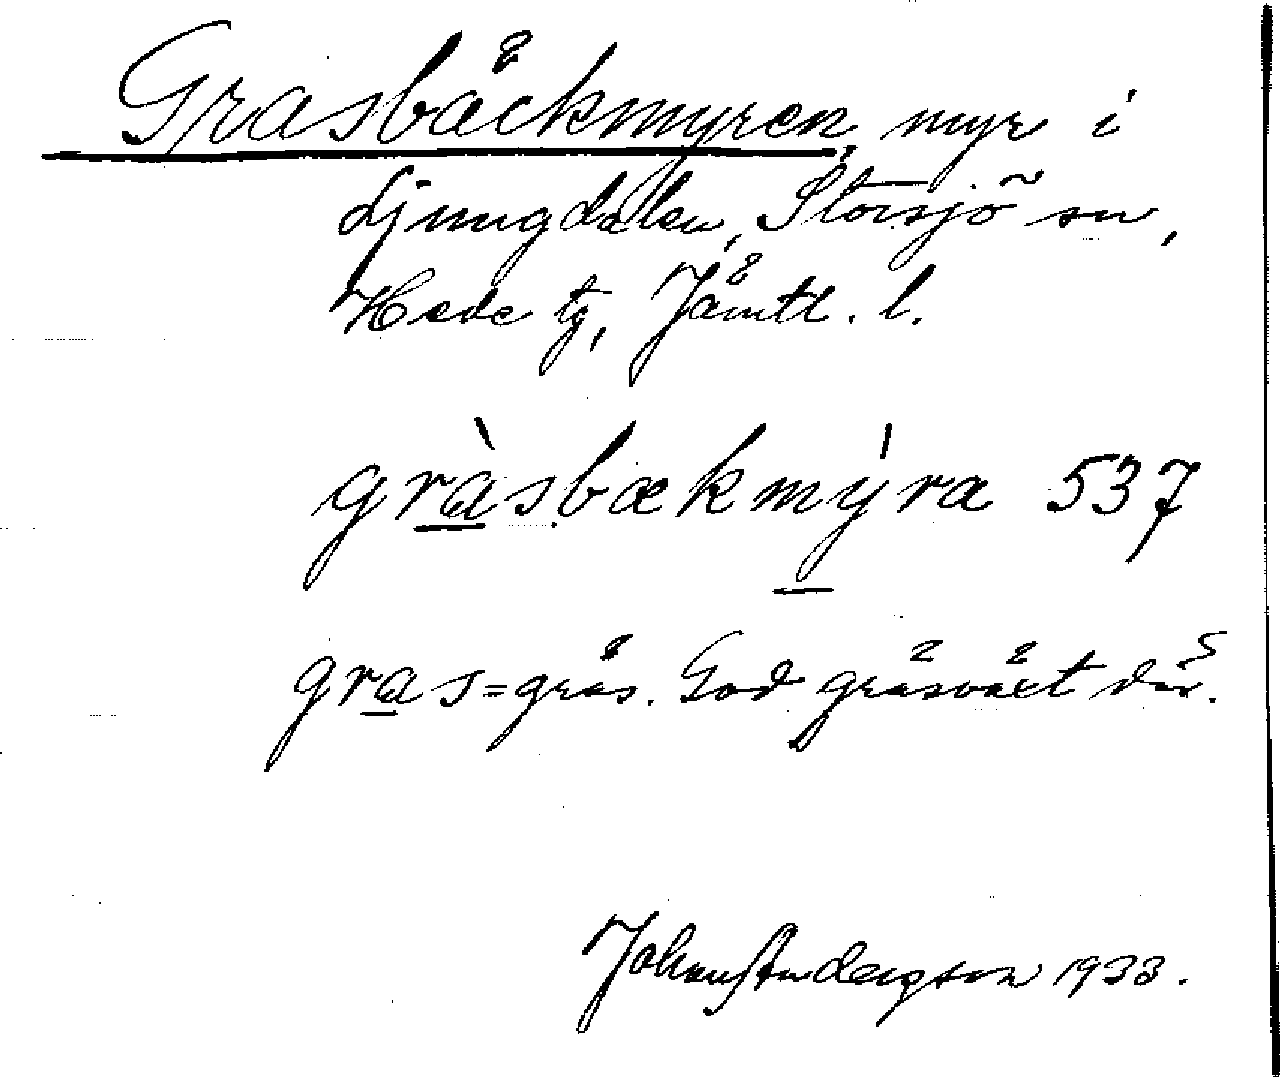 Grasbäckmyren, myr i
Ljungdalen, Storsjö sn,
Hede tg, Jämtl. l.
gràsbækmýra 537
gras = gräs. God gräsväxt där.
Johan Andersson 1933.